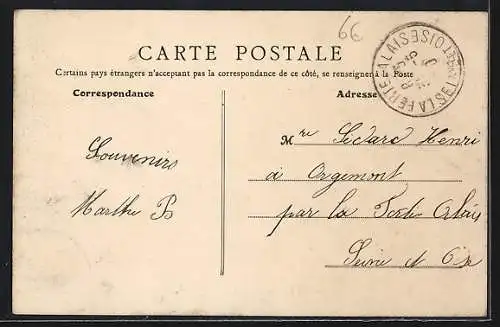 66
CARTE POSTALE
Certains pays étrangers n'acceptent pas la correspondance de ce côté, se renseigner à la Poste
Correspondance
Adresse
LA FERTE-ALAIS SEINE-ET-OISE
Souvenirs
Marthe B
Mre Sidard Henri
à Orgemont
par la Ferte Alais
Seine et Oise